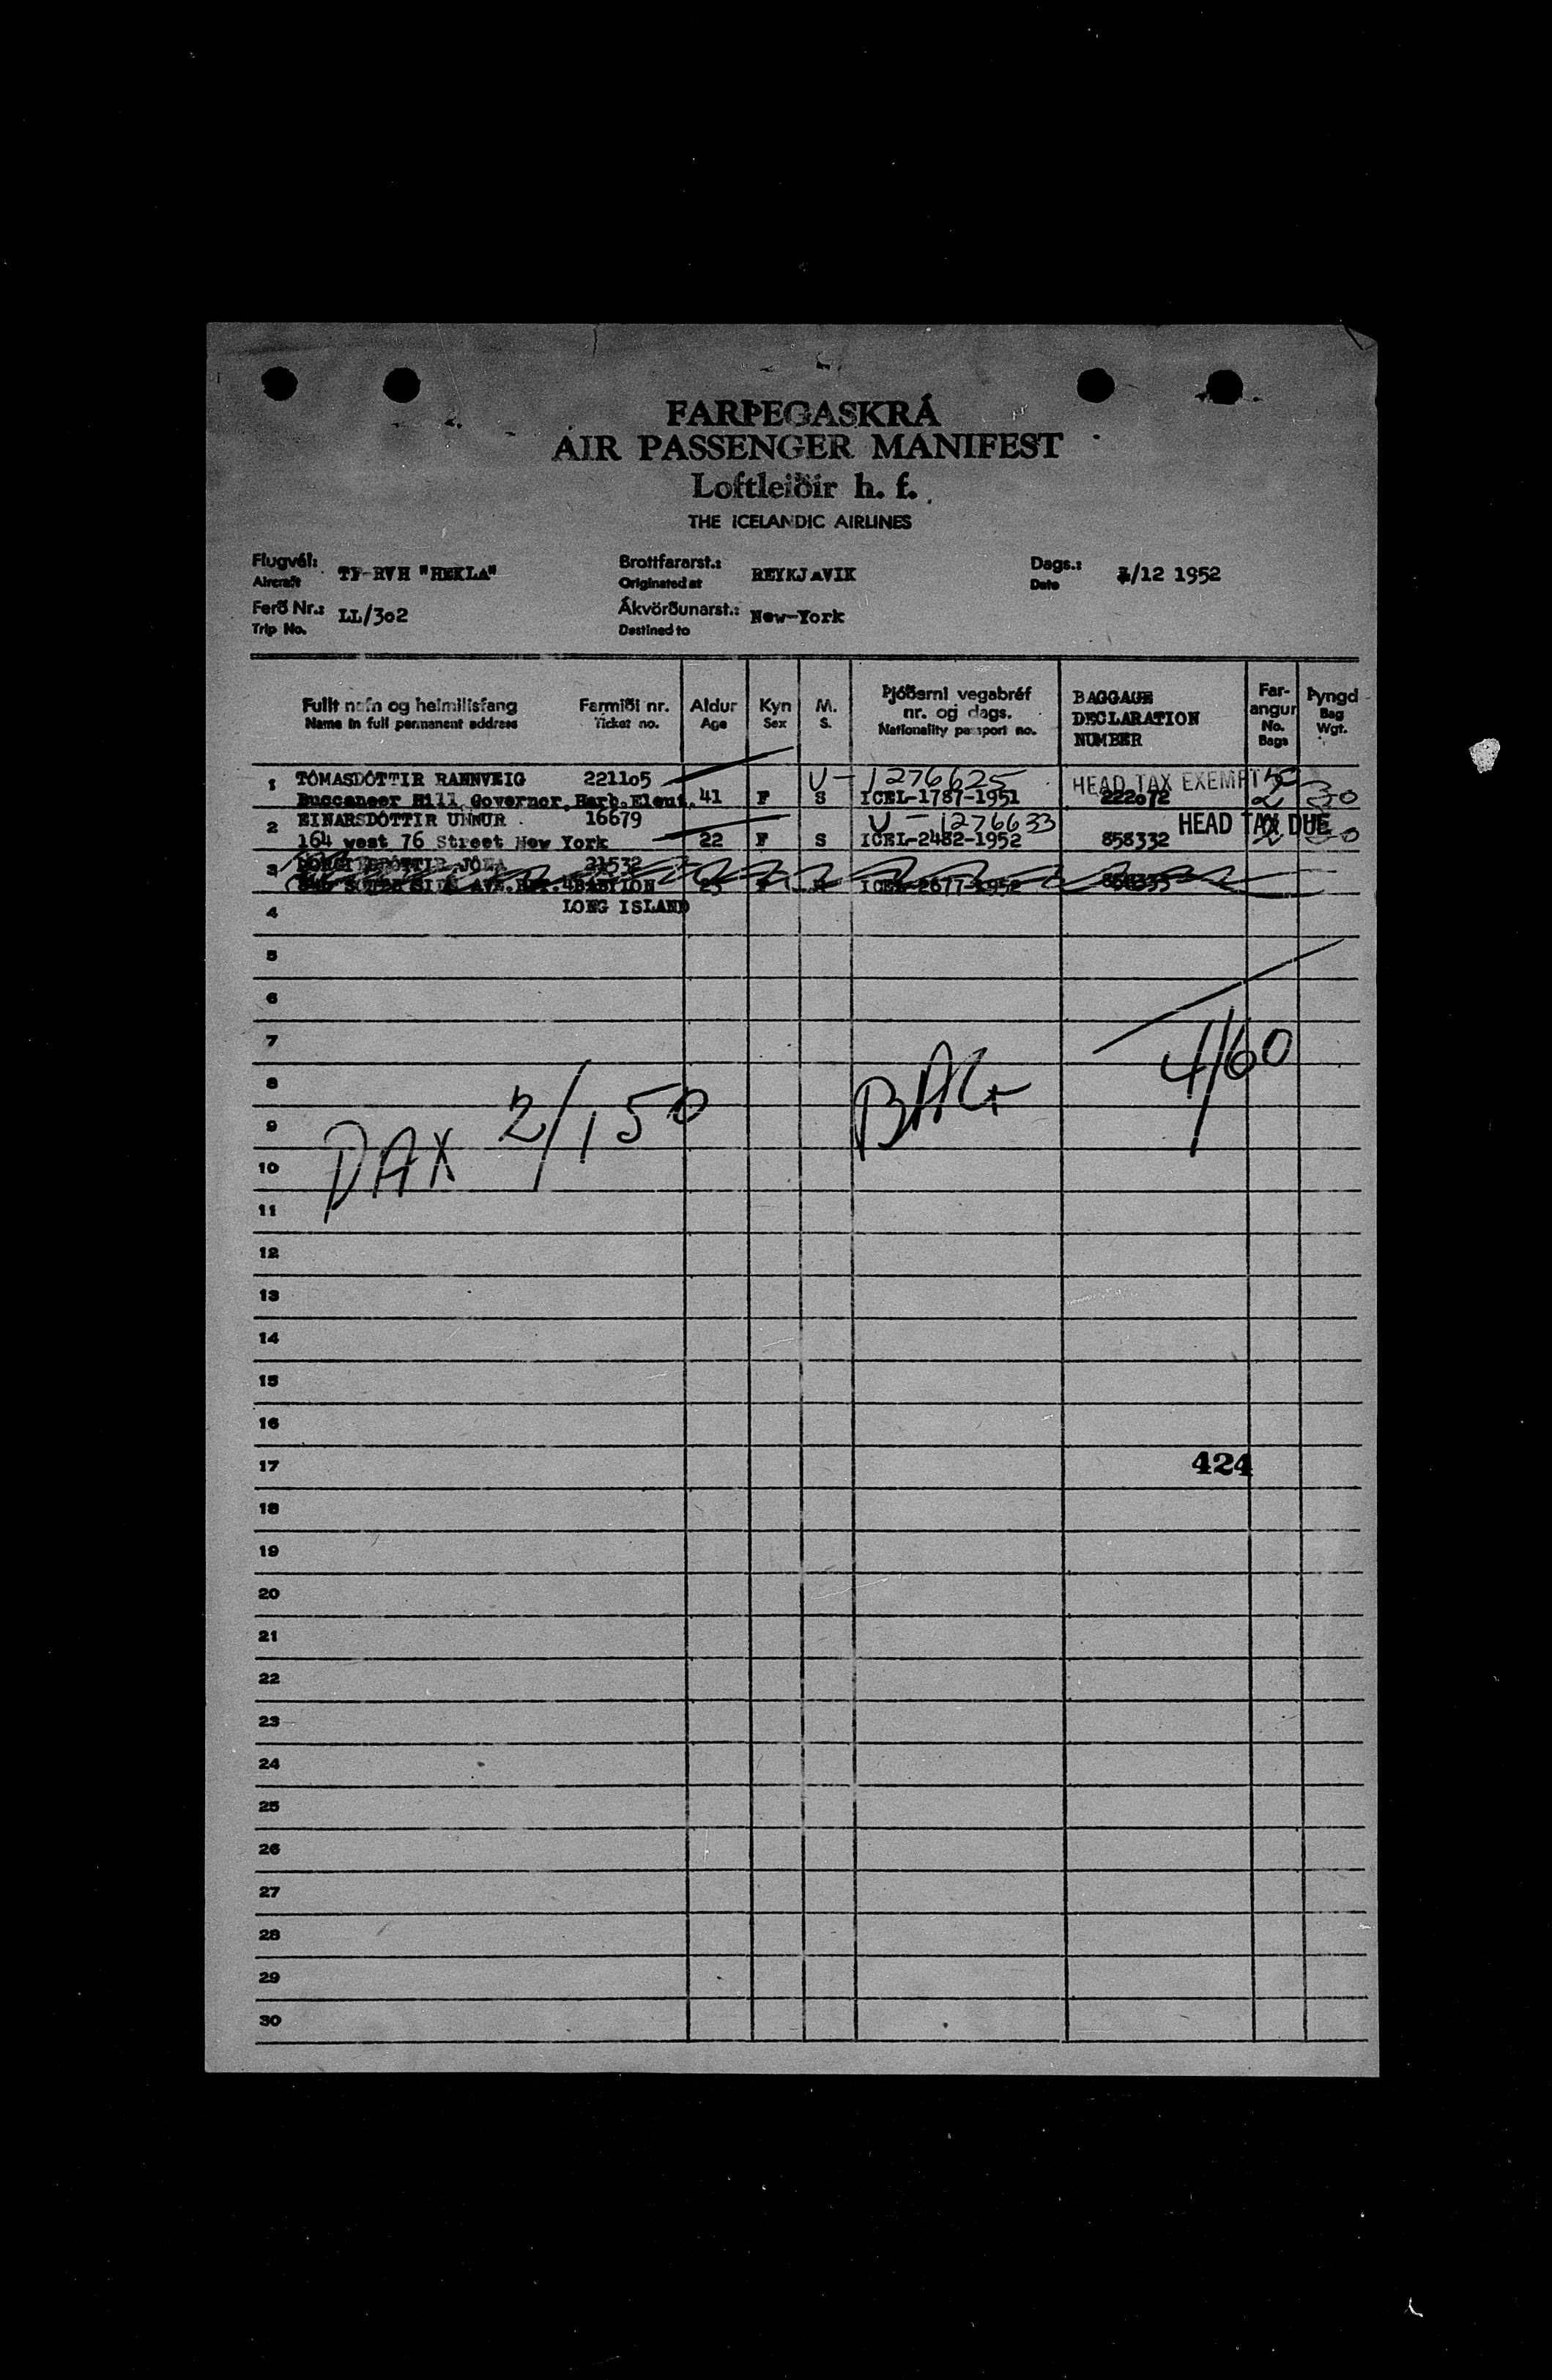 FARÞEGASKRÁ
AIR PASSENGER MANIFEST
Loftleiðir h. f.
THE ICELANDIC AIRLINES
Flugvél: TF-RVH "HEKLA" Brottfararst.: REYKJAVIK Dags.: /12 1952
Aircraft Originated at Date
Ferð Nr.: LL/302 Ákvörðunarst.: New-York
Trip No. Destined to
Fullt nafn og heimilisfang Farmiði nr. Aldur Kyn M. Þjóðerni vegabréf nr. og dags. BAGGAGE DECLARATION NUMBER Far-angur Þyngd
Name in full permanent address Ticket no. Age Sex S. Nationality passport no. No. Bags Bag Wgt.
1 TÓMASDÓTTIR RANNVEIG 221105 V-1276625 HEAD TAX EXEMPT
Buccaneer Hill Governor, Harb. Eleut. 41 F S ICEL-1787-1951 222072 2 30
2 EINARSDÓTTIR UNNUR 16679 V-1276633 HEAD TAX DUE
164 west 76 Street New York 22 F S ICEL-2482-1952 858332 2 30
3 JÓNA 21532
ICEL-2677-1952 858333
4 LONG ISLAND
5
6
7
8
9
10
PAX 2/150 BAG 4/60
11
12
13
14
15
16
17 424
18
19
20
21
22
23
24
25
26
27
28
29
30